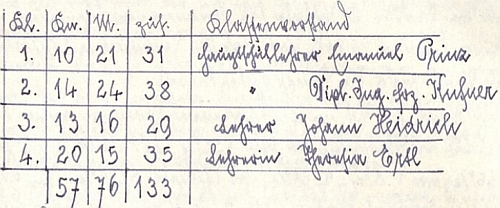 Kl. Kn. M. zus. Klassenvorstand
1. 10 21 31 Hauptschullehrer Emanuel Prinz
2. 14 24 38 " Dipl. Ing. Frz. Kufner
3. 13 16 29 Lehrer Johann Heidrich
4. 20 15 35 Lehrerin Theresia Ertl
57 76 133